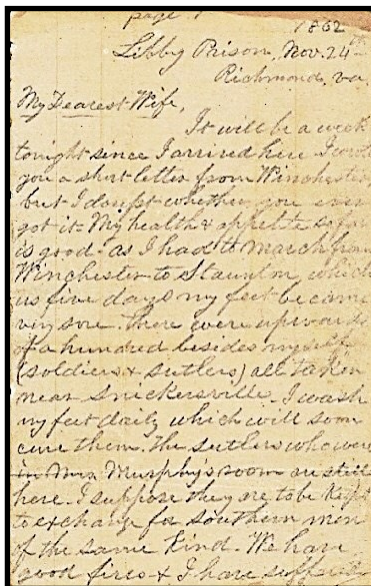 page 1
1862
Libby Prison, Nov. 24th
Richmond, Va.
My Dearest Wife,
It will be a week
tonight since I arrived here I wrote
you a short letter from Winchester
but I doubt whether you ever
got it - My health & appetite so far
is good - as I had to march from
Winchester to Staunton which
is five days my feet became
very sore. There were upwards
of a hundred besides myself
(soldiers & sutlers) all taken
near Snickersville. I wash
my feet daily which will soon
cure them. The sutlers who were
in Mrs. Murphy's room are still
here. I suppose they are to be kept
to exchange for Southern men
of the same kind - We have
good fires & I have